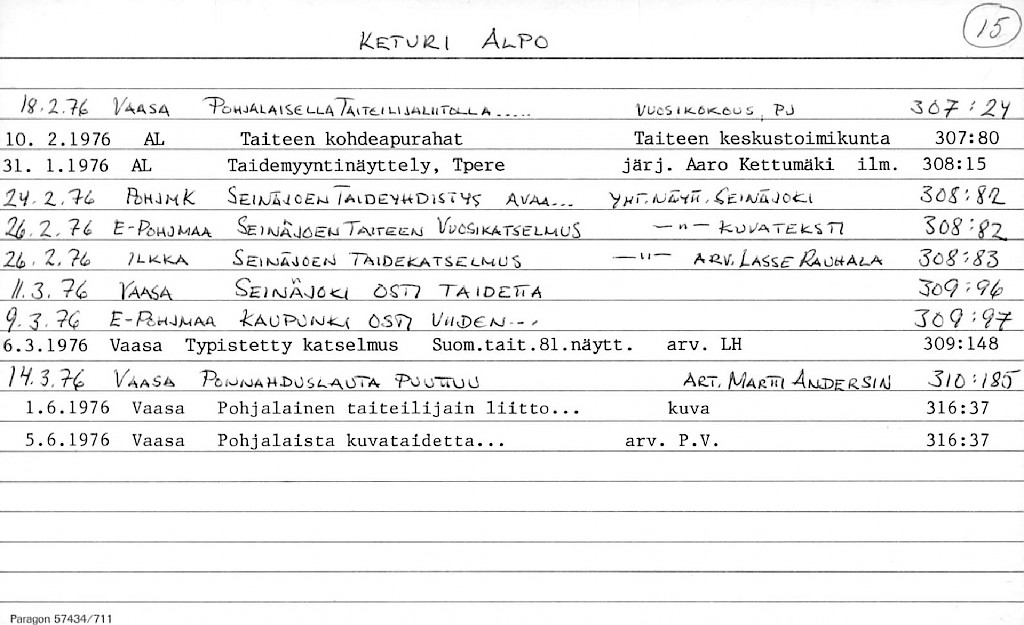 15
KETURI ALPO
18.2.76 VAASA POHJALAISELLA TAITEILIJALIITOLLA..... VUOSIKOKOUS, PJ 307:24
10. 2.1976 AL Taiteen kohdeapurahat Taiteen keskustoimikunta 307:80
31. 1.1976 AL Taidemyyntinäyttely, Tpere järj. Aaro Kettumäki ilm. 308:15
24.2.76 POHJMK SEINÄJOEN TAIDEYHDISTYS AVAA... YHT.NÄYTT. SEINÄJOKI 308:82
26.2.76 E-POHJMAA SEINÄJOEN TAITEEN VUOSIKATSELMUS —"— KUVATEKSTI 308:82
26.2.76 ILKKA SEINÄJOEN TAIDEKATSELMUS —"— ARV. LASSE RAUHALA 308:83
11.3.76 VAASA SEINÄJOKI OSTI TAIDETTA 309:96
9.3.76 E-POHJMAA KAUPUNKI OSTI VIIDEN... 309:97
6.3.1976 Vaasa Typistetty katselmus Suom.tait.81.näytt. arv. LH 309:148
14.3.76 VAASA PONNAHDUSLAUTA PUUTTUU ART. MARTTI ANDERSIN 310:185
1.6.1976 Vaasa Pohjalainen taiteilijain liitto... kuva 316:37
5.6.1976 Vaasa Pohjalaista kuvataidetta... arv. P.V. 316:37
Paragon 57434/711